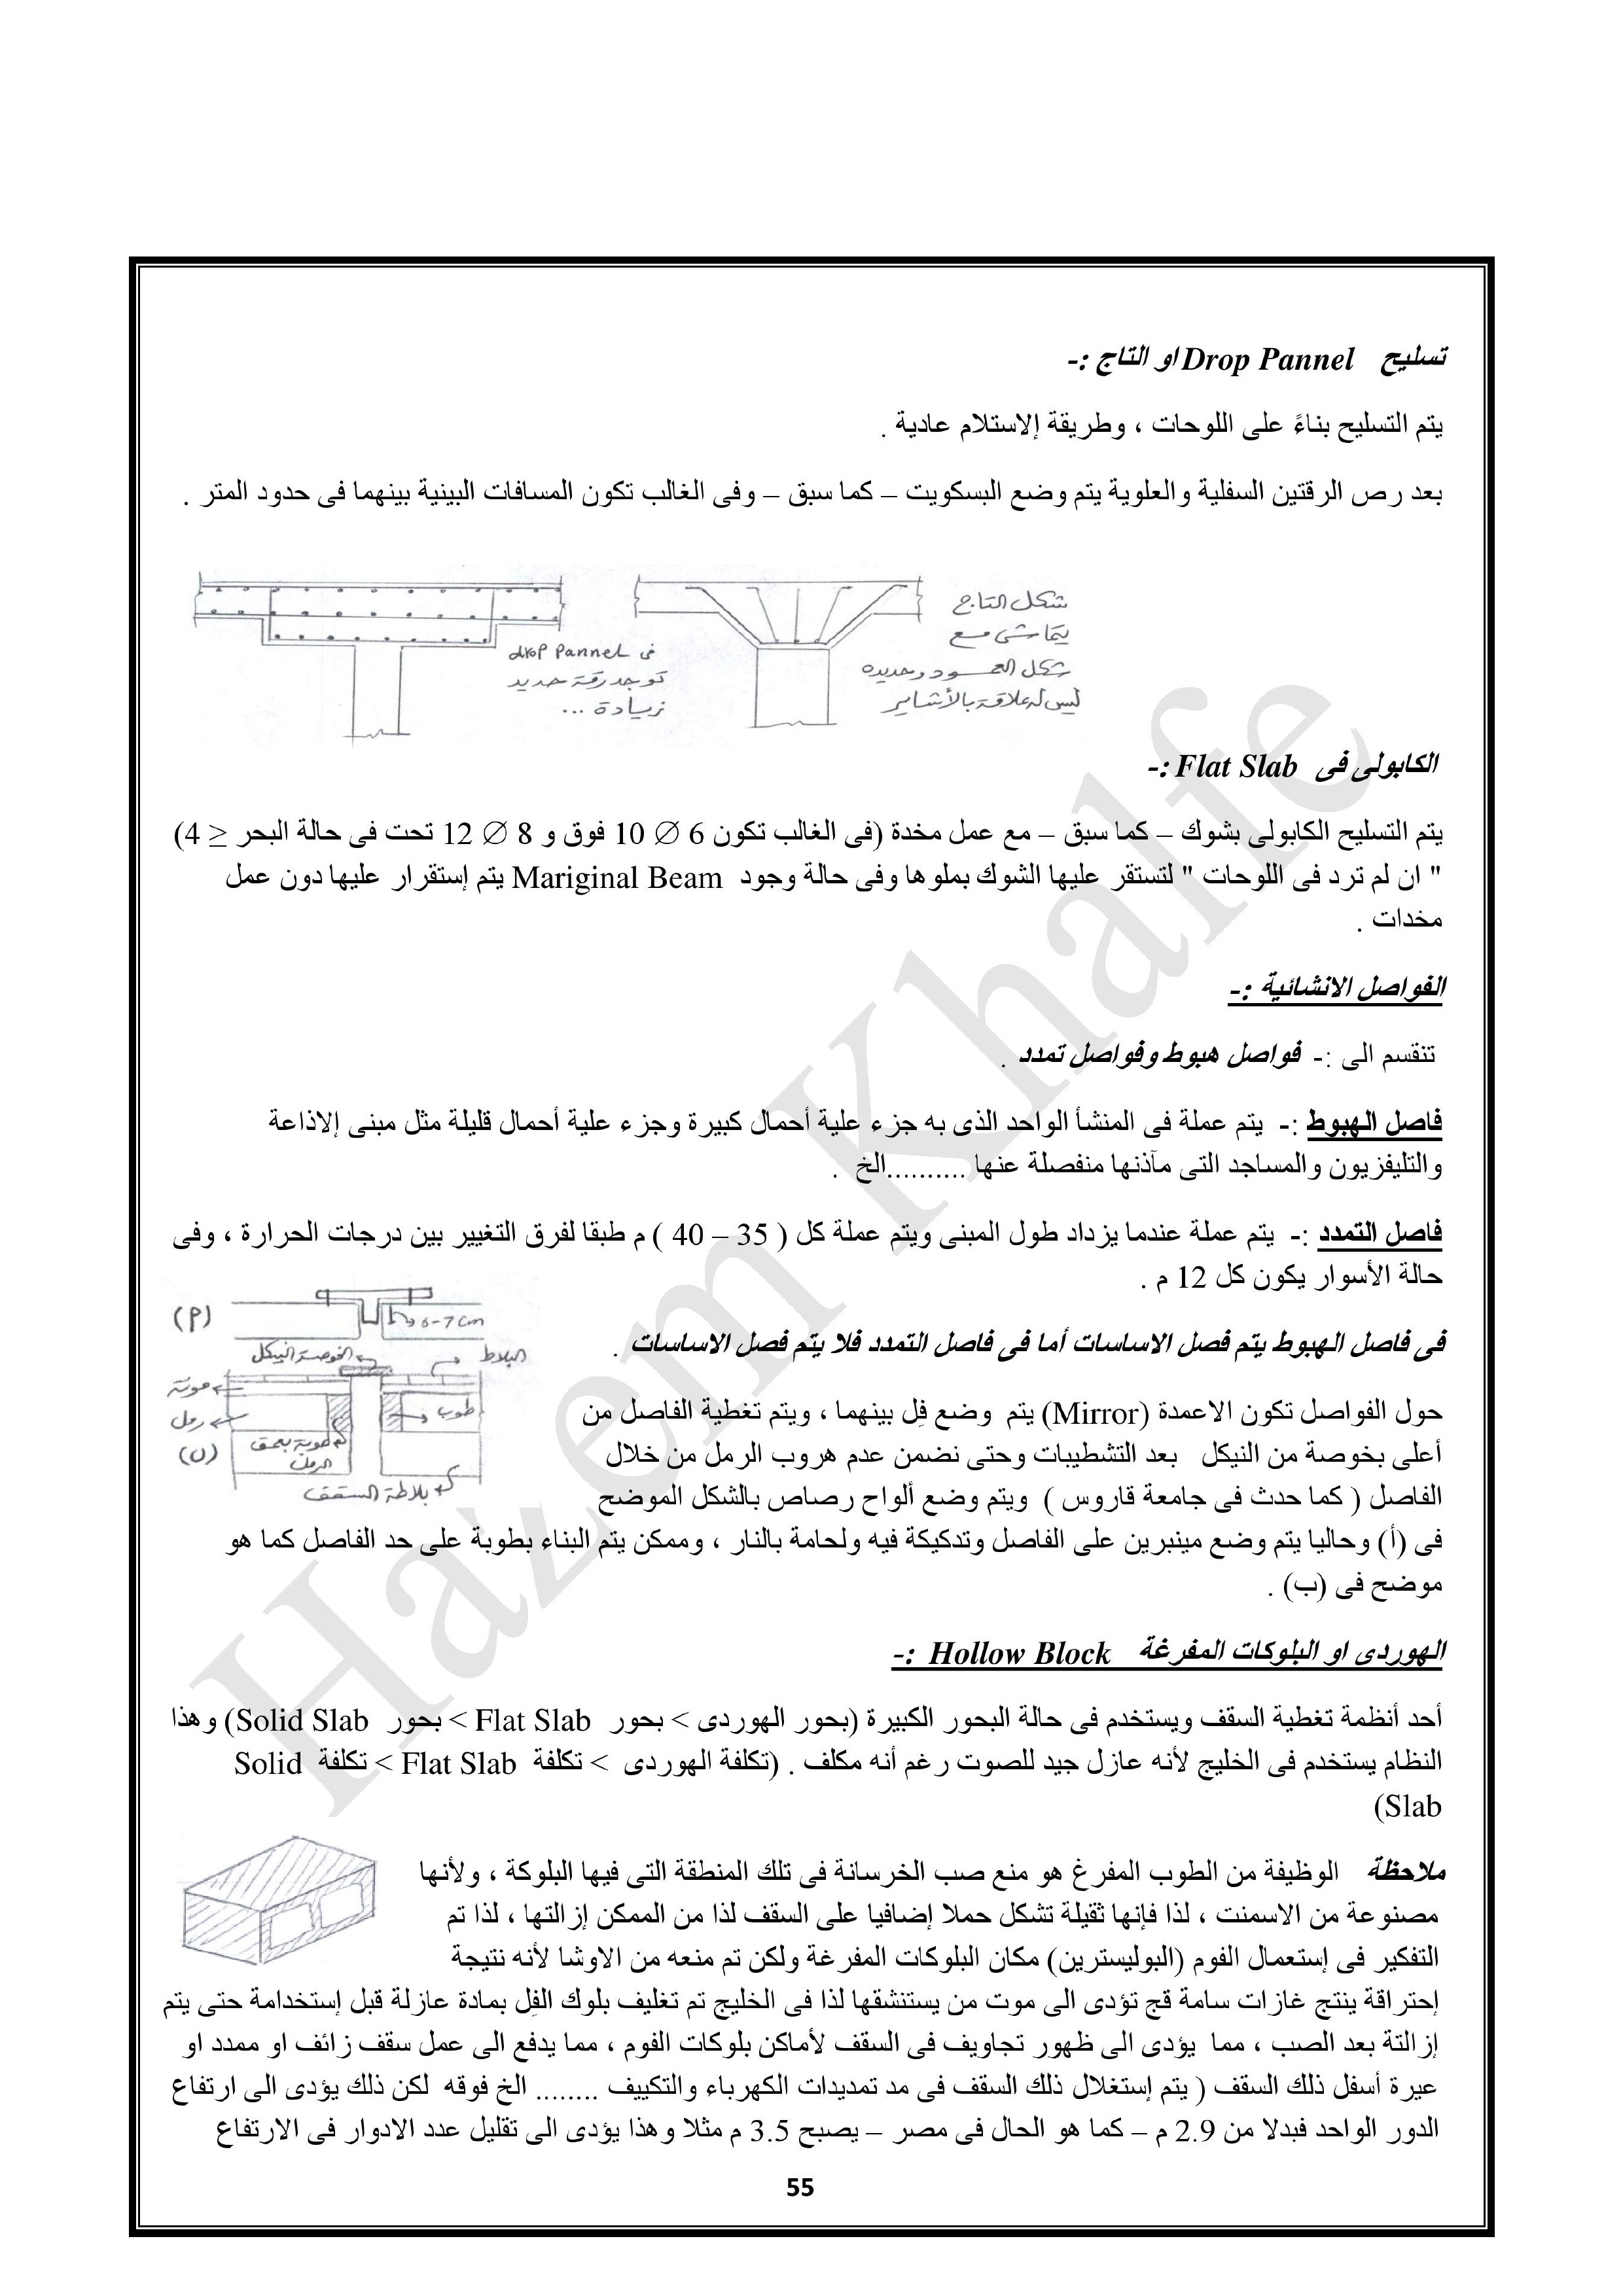 تسليح Drop Pannel او التاج :-
يتم التسليح بناءً على اللوحات ، وطريقة إلاستلام عادية .
بعد رص الرقتين السفلية والعلوية يتم وضع البسكويت – كما سبق – وفى الغالب تكون المسافات البينية بينهما فى حدود المتر .
شكل التاج
يتماشى مع
شكل العمود وحديده
ليس له علاقة بالأشاير
فى drop pannel
توجد رقة حديد
زيادة ...
الكابولى فى Flat Slab :-
يتم التسليح الكابولى بشوك – كما سبق – مع عمل مخدة (فى الغالب تكون 6 ∅ 10 فوق و 8 ∅ 12 تحت فى حالة البحر ≤ 4)
" ان لم ترد فى اللوحات " لتستقر عليها الشوك بملوها وفى حالة وجود Mariginal Beam يتم إستقرار عليها دون عمل
مخدات .
الفواصل الانشائية :-
تنقسم الى :- فواصل هبوط وفواصل تمدد .
فاصل الهبوط :- يتم عملة فى المنشأ الواحد الذى به جزء علية أحمال كبيرة وجزء علية أحمال قليلة مثل مبنى إلاذاعة
والتليفزيون والمساجد التى مآذنها منفصلة عنها ..........الخ .
فاصل التمدد :- يتم عملة عندما يزداد طول المبنى ويتم عملة كل ( 35 – 40 ) م طبقا لفرق التغيير بين درجات الحرارة ، وفى
حالة الأسوار يكون كل 12 م .
(أ)
6-7 cm
فى فاصل الهبوط يتم فصل الاساسات أما فى فاصل التمدد فلا يتم فصل الاساسات .
البلاط
الخوصة النيكل
مونة
رمل
طوب
طوبة بعمق
الرمل
(ب)
بلاطة السقف
حول الفواصل تكون الاعمدة (Mirror) يتم وضع فِل بينهما ، ويتم تغطية الفاصل من
أعلى بخوصة من النيكل بعد التشطيبات وحتى نضمن عدم هروب الرمل من خلال
الفاصل ( كما حدث فى جامعة قاروس ) ويتم وضع ألواح رصاص بالشكل الموضح
فى (أ) وحاليا يتم وضع مينبرين على الفاصل وتدكيكة فيه ولحامة بالنار ، وممكن يتم البناء بطوبة على حد الفاصل كما هو
موضح فى (ب) .
الهوردى او البلوكات المفرغة Hollow Block :-
أحد أنظمة تغطية السقف ويستخدم فى حالة البحور الكبيرة (بحور الهوردى > بحور Flat Slab > بحور Solid Slab) وهذا
النظام يستخدم فى الخليج لأنه عازل جيد للصوت رغم أنه مكلف . (تكلفة الهوردى > تكلفة Flat Slab > تكلفة Solid
Slab)
ملاحظة الوظيفة من الطوب المفرغ هو منع صب الخرسانة فى تلك المنطقة التى فيها البلوكة ، ولأنها
مصنوعة من الاسمنت ، لذا فإنها ثقيلة تشكل حملا إضافيا على السقف لذا من الممكن إزالتها ، لذا تم
التفكير فى إستعمال الفوم (البوليسترين) مكان البلوكات المفرغة ولكن تم منعه من الاوشا لأنه نتيجة
إحتراقة ينتج غازات سامة قج تؤدى الى موت من يستنشقها لذا فى الخليج تم تغليف بلوك الفِل بمادة عازلة قبل إستخدامة حتى يتم
إزالتة بعد الصب ، مما يؤدى الى ظهور تجاويف فى السقف لأماكن بلوكات الفوم ، مما يدفع الى عمل سقف زائف او ممدد او
عيرة أسفل ذلك السقف ( يتم إستغلال ذلك السقف فى مد تمديدات الكهرباء والتكييف ........ الخ فوقه لكن ذلك يؤدى الى ارتفاع
الدور الواحد فبدلا من 2.9 م – كما هو الحال فى مصر – يصبح 3.5 م مثلا وهذا يؤدى الى تقليل عدد الادوار فى الارتفاع
55
Hazem Khalfe